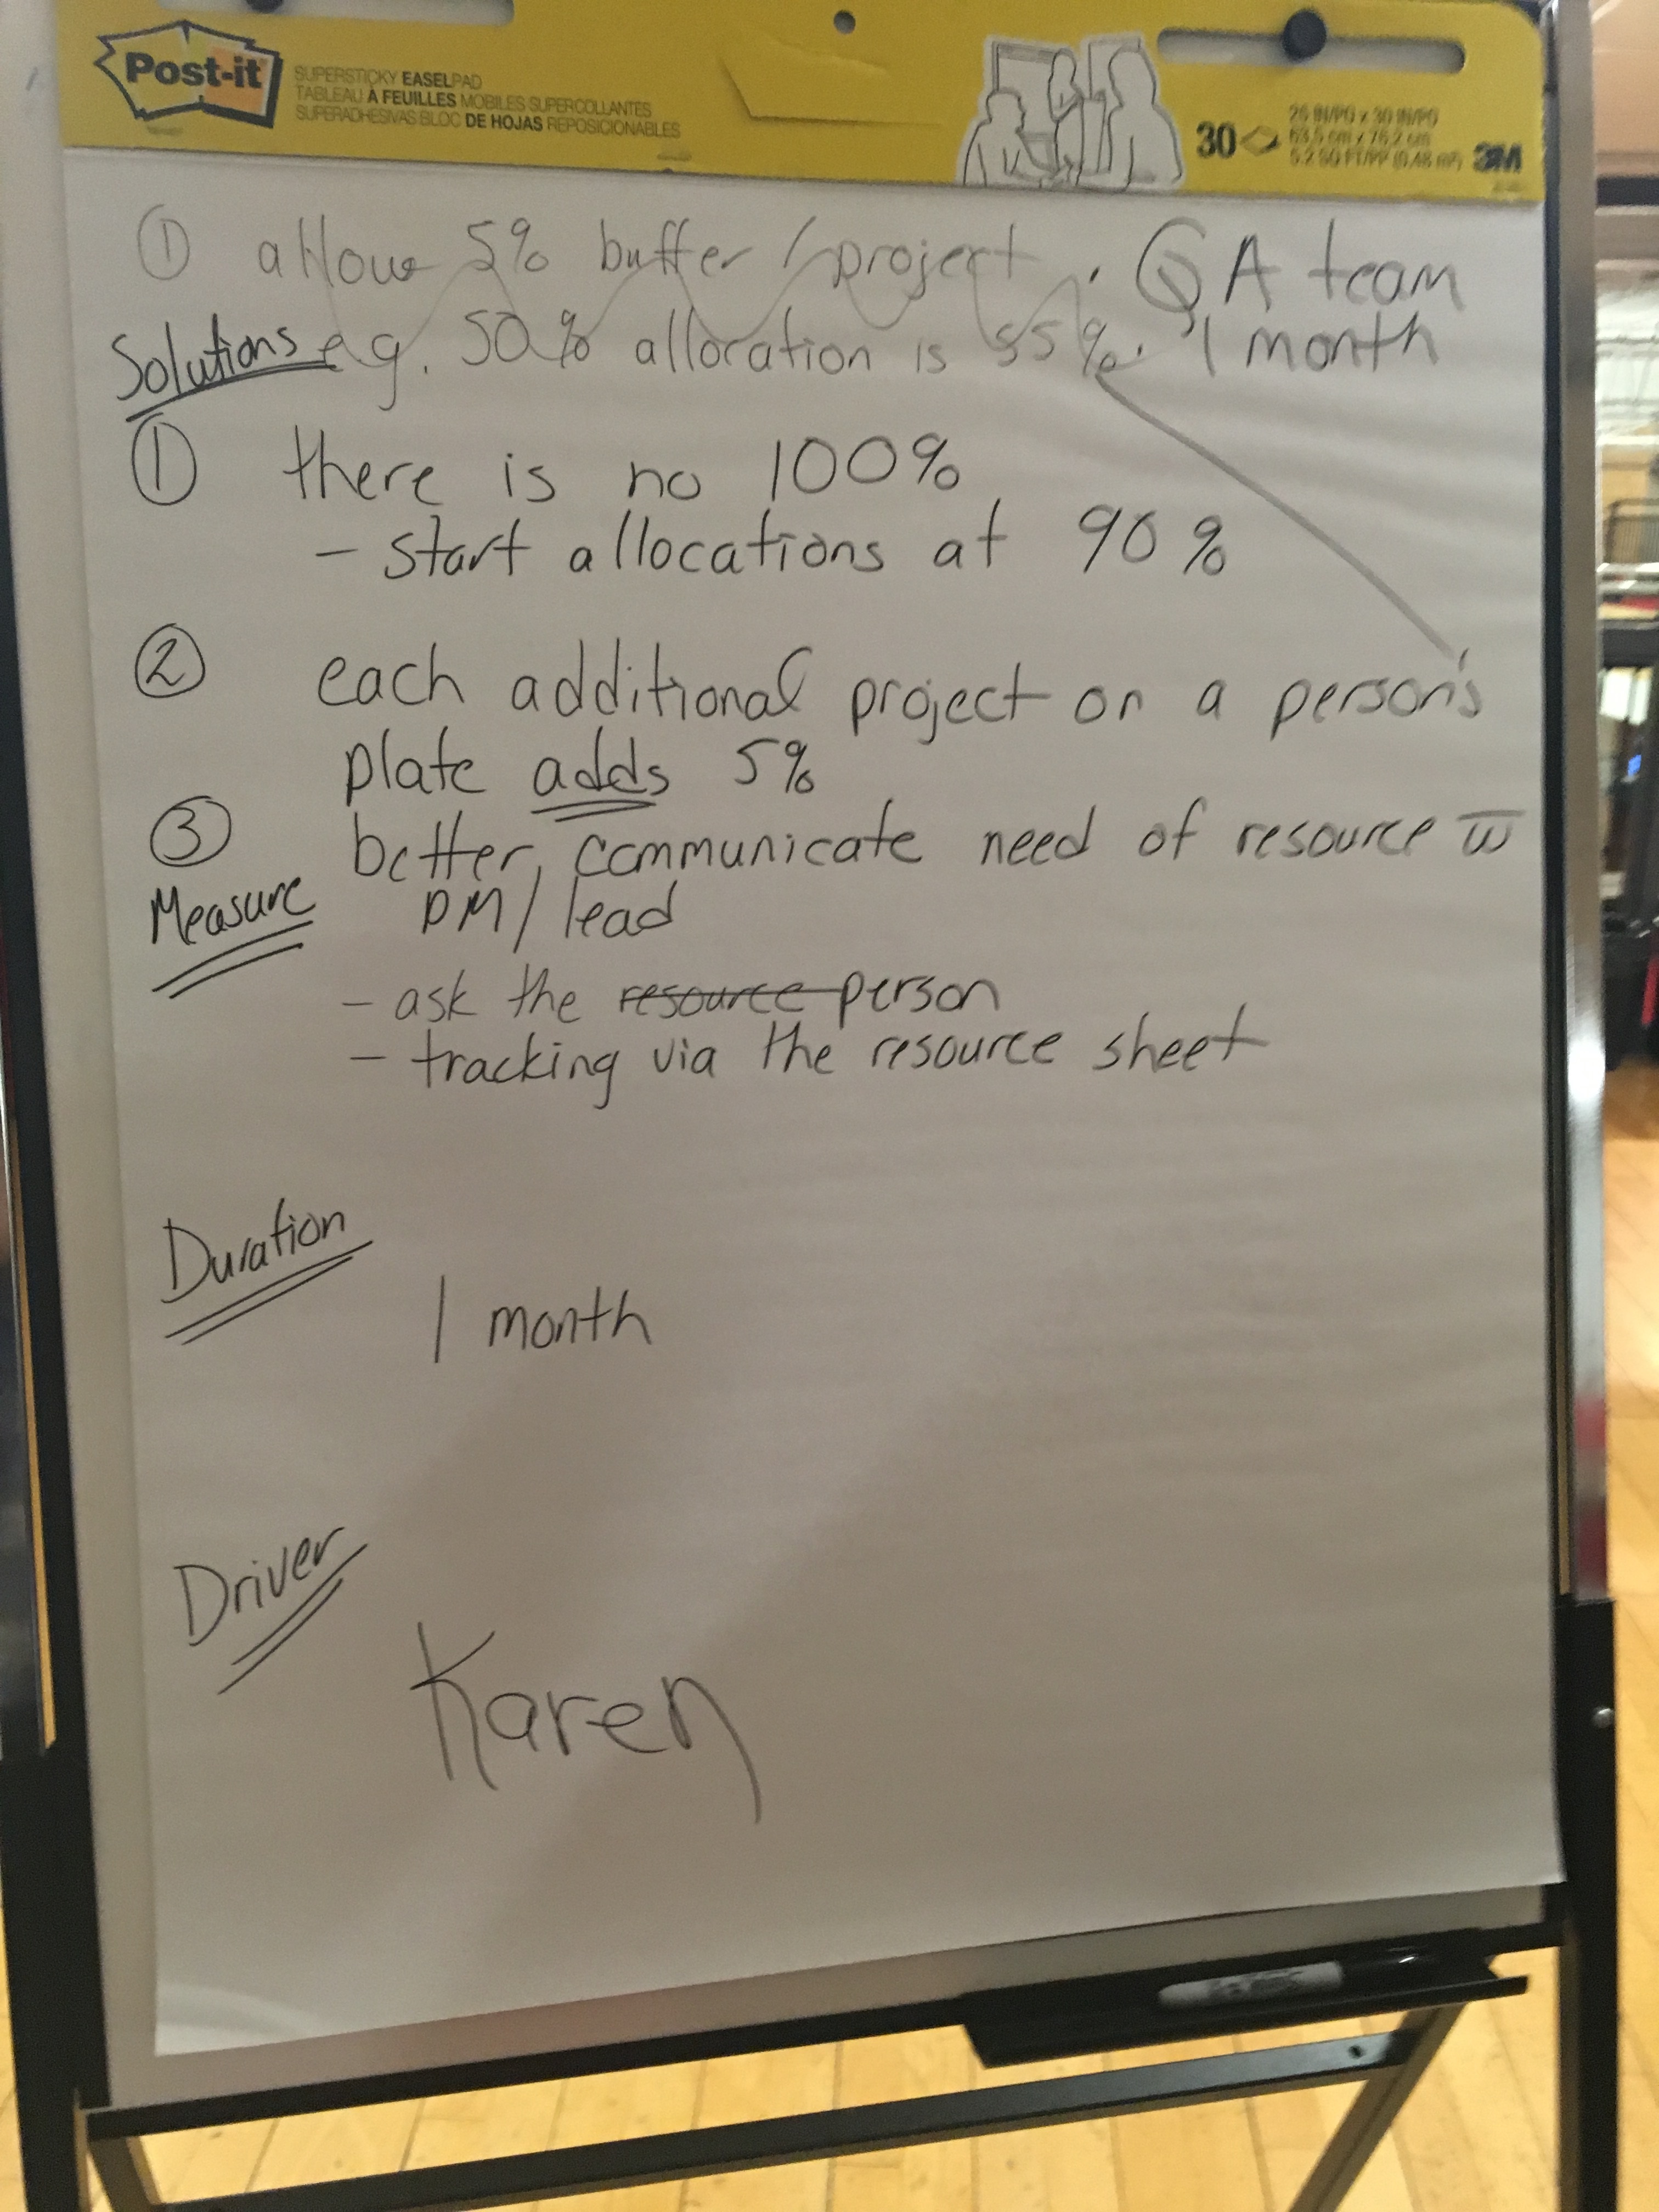 Post-it
SUPERSTICKY EASELPAD
TABLEAU À FEUILLES MOBILES SUPERCOLLANTES
SUPERADHESIVAS BLOC DE HOJAS REPOSICIONABLES
30
25 IN/PO x 30 IN/PO
63.5 cm x 76.2 cm
5.2 SQ FT/PI² (0.48 m²)
3M
① allow 5% buffer / project . QA team
Solutions e.g. 50% allocation is 55%. 1 month
① there is no 100%
- start allocations at 90%
② each additional project on a person's
plate adds 5%
③ better communicate need of resource w̅
Measure PM/lead
- ask the resource person
- tracking via the resource sheet
Duration
1 month
Driver
Karen